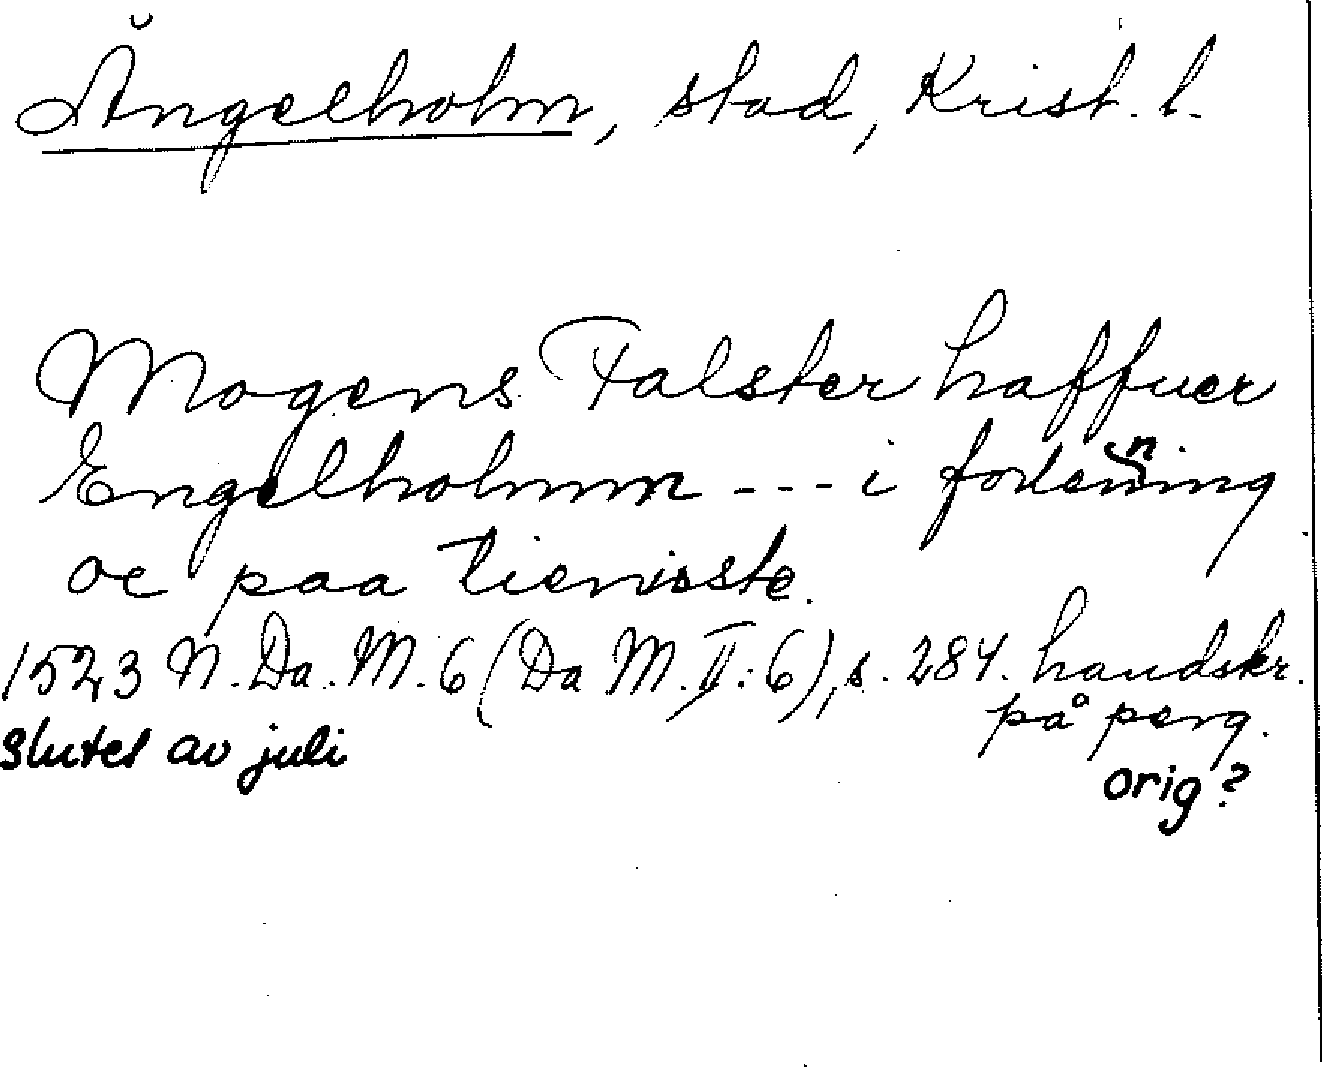 Ängelholm, stad, Krist. l.
Mogens Falster haffuer
Engelholmm --- i forlenning
oc paa tienisste.
1523 N. Da. M. 6 (Da M. II: 6), s. 284. handskr.
på perg.
slutet av juli
orig?